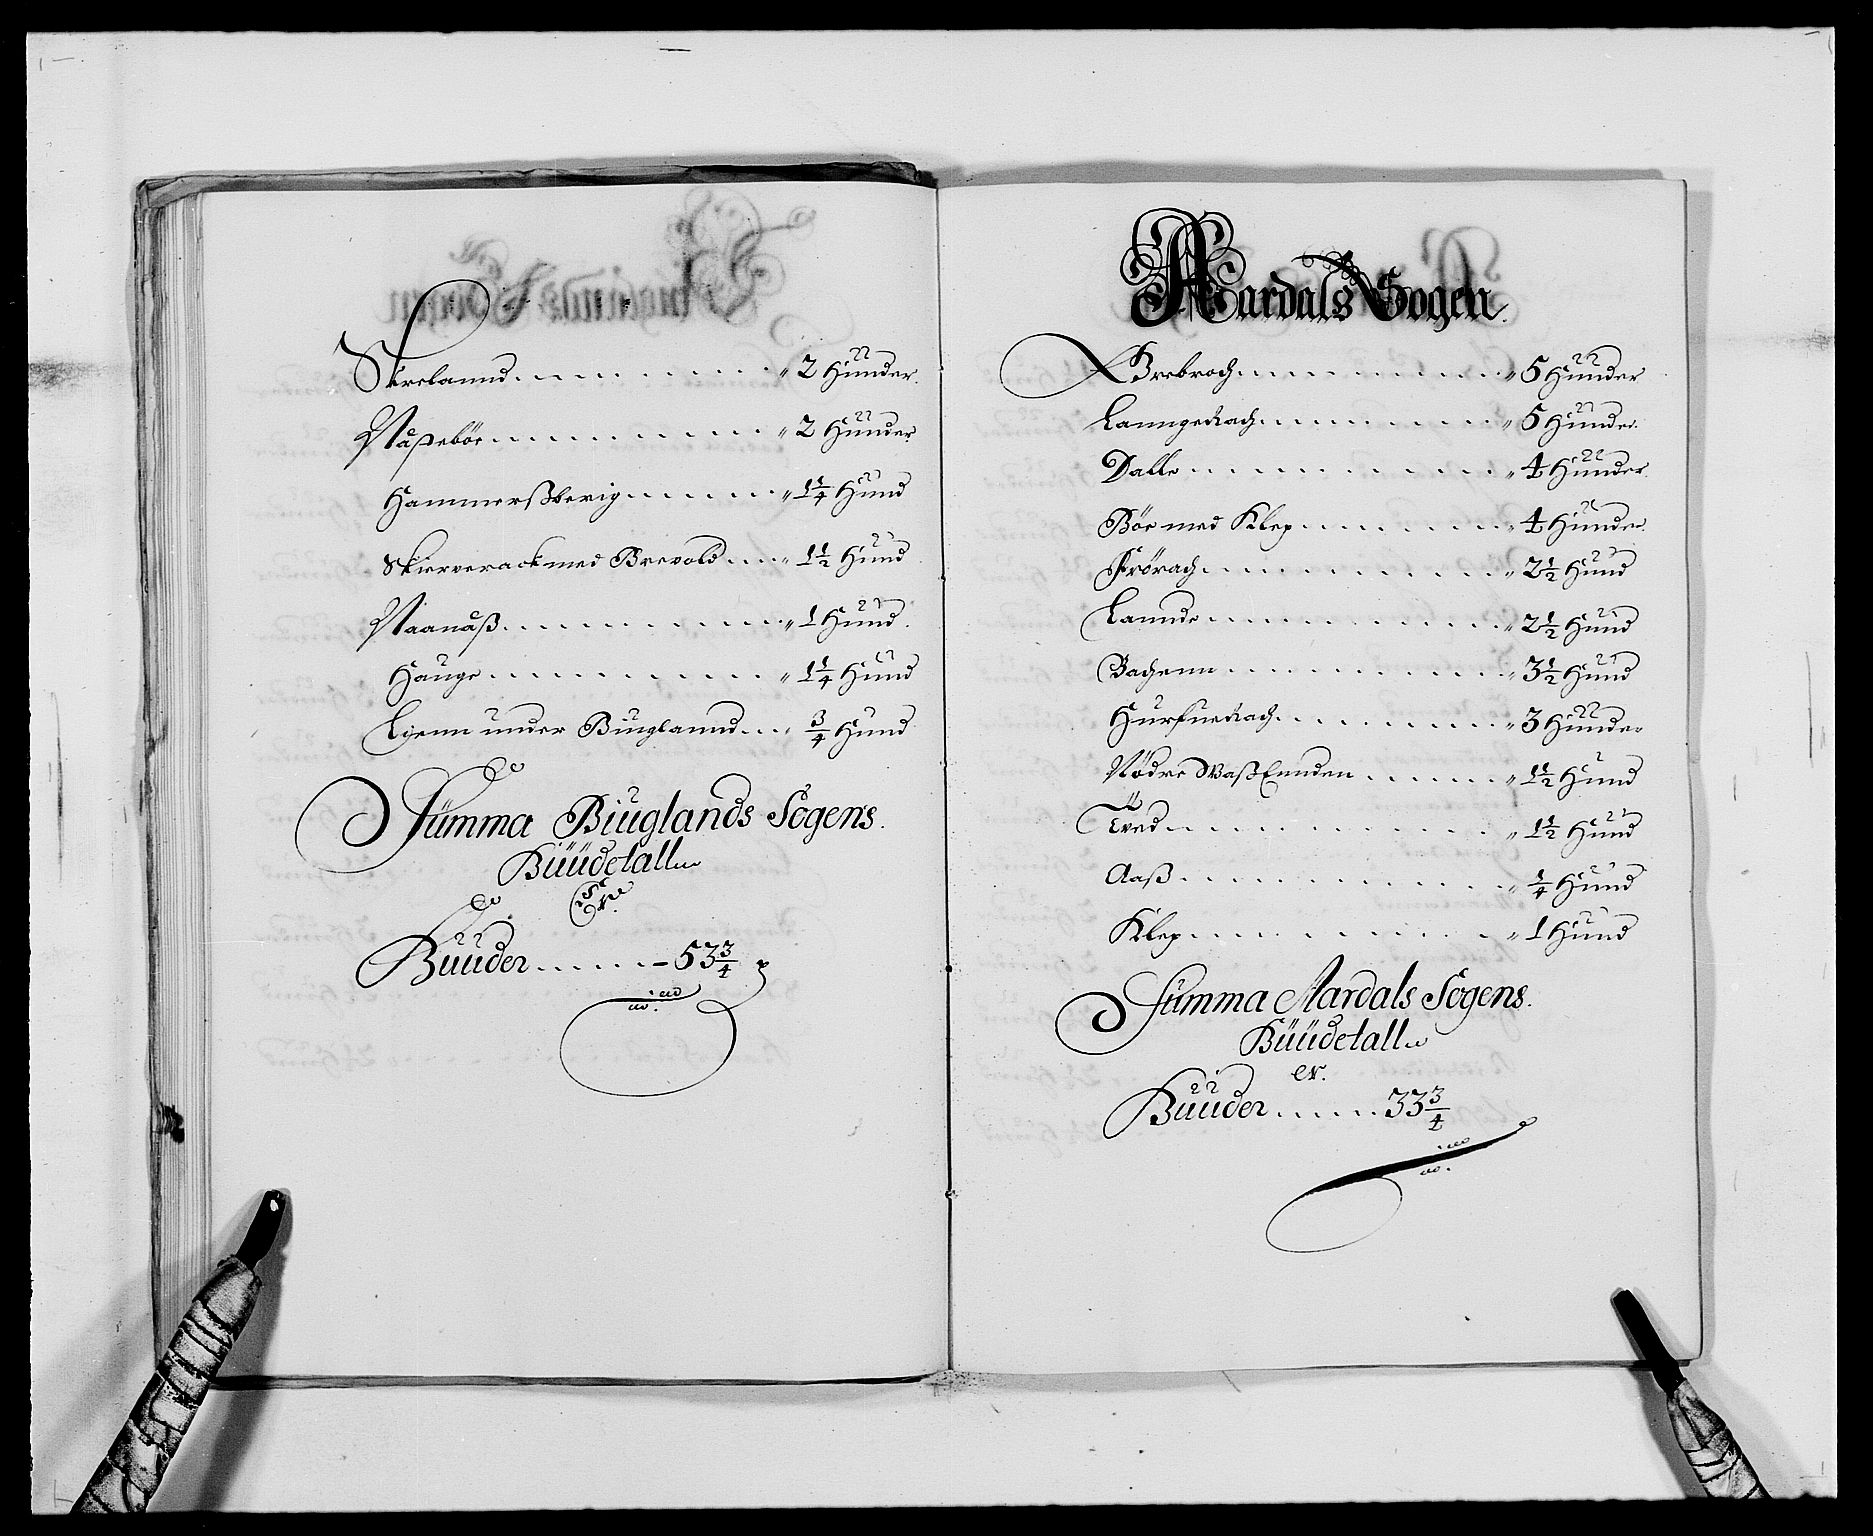 Skrelannd . . . . . . . . . . . „ 2 Huuder
Næpebøe . . . . . . . . . . . „ 2 Huuder
Hammerßberig . . . . . . . „ 1¼ Huud
Skierverack med Brevold . . . . „ 1½ Huud
Naanæß . . . . . . . . . . . „ 1 Huud
Hauge . . . . . . . . . . . „ 1¼ Huud
Lienn under Biuglannd . . . „ ¾ Huud
Summa Biuglands Sogens
Huudetall
Er
Huuder . . . . . . – 53¾
Aardals Sogen
Brebroch . . . . . . . . . . . „ 5 Huuder
Lanngerach . . . . . . . . . . „ 5 Huuder
Dalle . . . . . . . . . . . . „ 4 Huuder
Bøe med Klep . . . . . . . . . „ 4 Huuder
Frørach . . . . . . . . . . . „ 2½ Huud
Lannde . . . . . . . . . . . „ 2½ Huud
Bachenn . . . . . . . . . . . „ 3½ Huud
Hurfuerach . . . . . . . . . „ 3 Huuder
Nødre Waßennden . . . . . . „ 1½ Huud
Tved . . . . . . . . . . . . „ 1½ Huud
Aaß . . . . . . . . . . . . „ ¼ Huud
Klep . . . . . . . . . . . . „ 1 Huud
Summa Aardals Sogens
Huudetall
er
Huuder . . . . . . 33¾